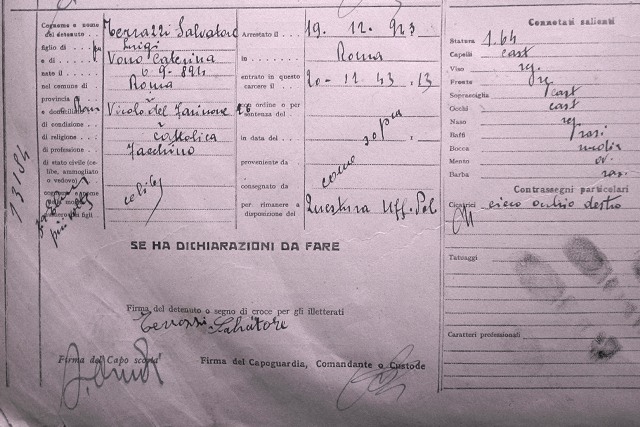 Cognome e nome del detenuto Terrazzi Salvatore
figlio di fu Luigi
e di Vono Caterina
nato il 6-9-894
nel comune di Roma
provincia
e domiciliato Roma Vicolo del Farinone 26
di condizione
di religione cattolica
di professione facchino
di stato civile (celibe, ammogliato o vedovo) celibe
cognome e nome
13184
Arrestato il 19. 12. 943
in Roma
entrato in questo carcere il 20-12 43 13
con ordine o per sentenza del
in data del
come sopra
proveniente da
consegnato da
per rimanere a disposizione del Questura Uff. Pol
SE HA DICHIARAZIONI DA FARE
Firma del detenuto o segno di croce per gli illetterati
Terrazzi Salvatore
Firma del Capo scorta
Firma del Capoguardia, Comandante o Custode
Connotati salienti
Statura 1.64
Capelli cast
Viso reg.
Fronte
Sopracciglia cast
Occhi cast
Naso reg
Baffi rasi
Bocca media
Mento ov.
Barba ras.
Contrassegni particolari
Cicatrici cieco occhio destro
Tatuaggi
Caratteri professionali